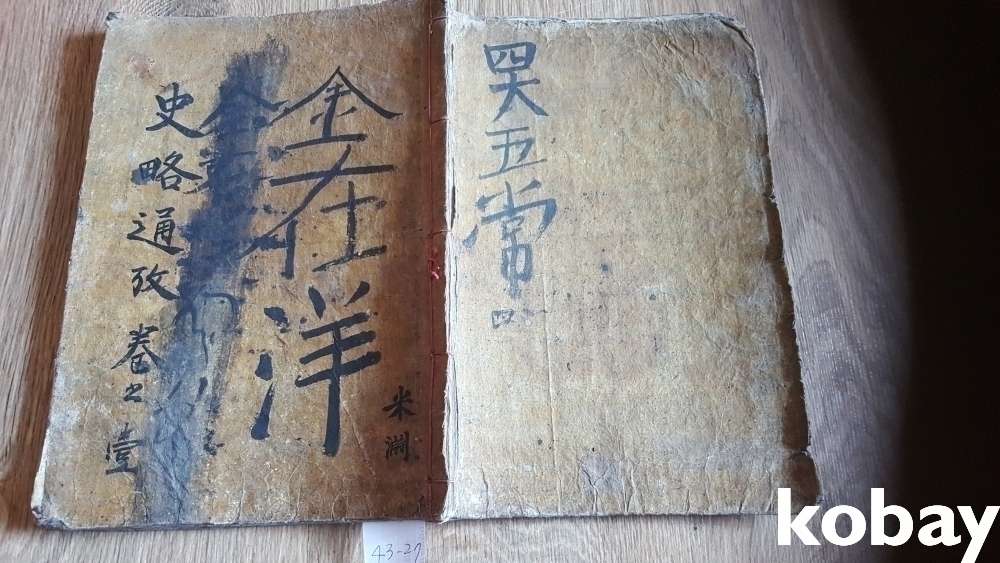 四大五常
四
金在洋
米淵
金
史略通攷 卷之壹
43-27
kobay